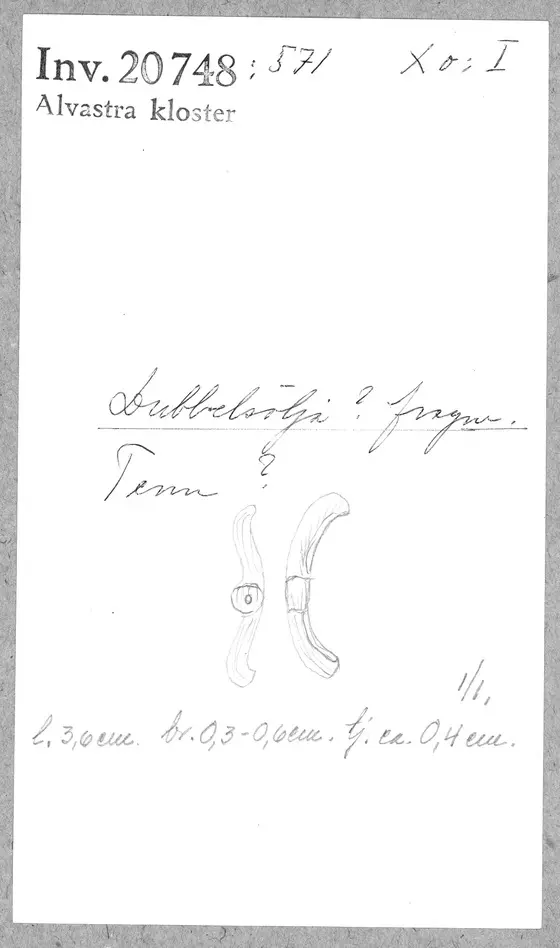 Inv. 20748:571 Xo: I
Alvastra kloster
Dubbelsölja? fragm.
Tenn ?
1/1.
l. 3,6 cm. br. 0,3-0,6 cm. tj. ca. 0,4 cm.